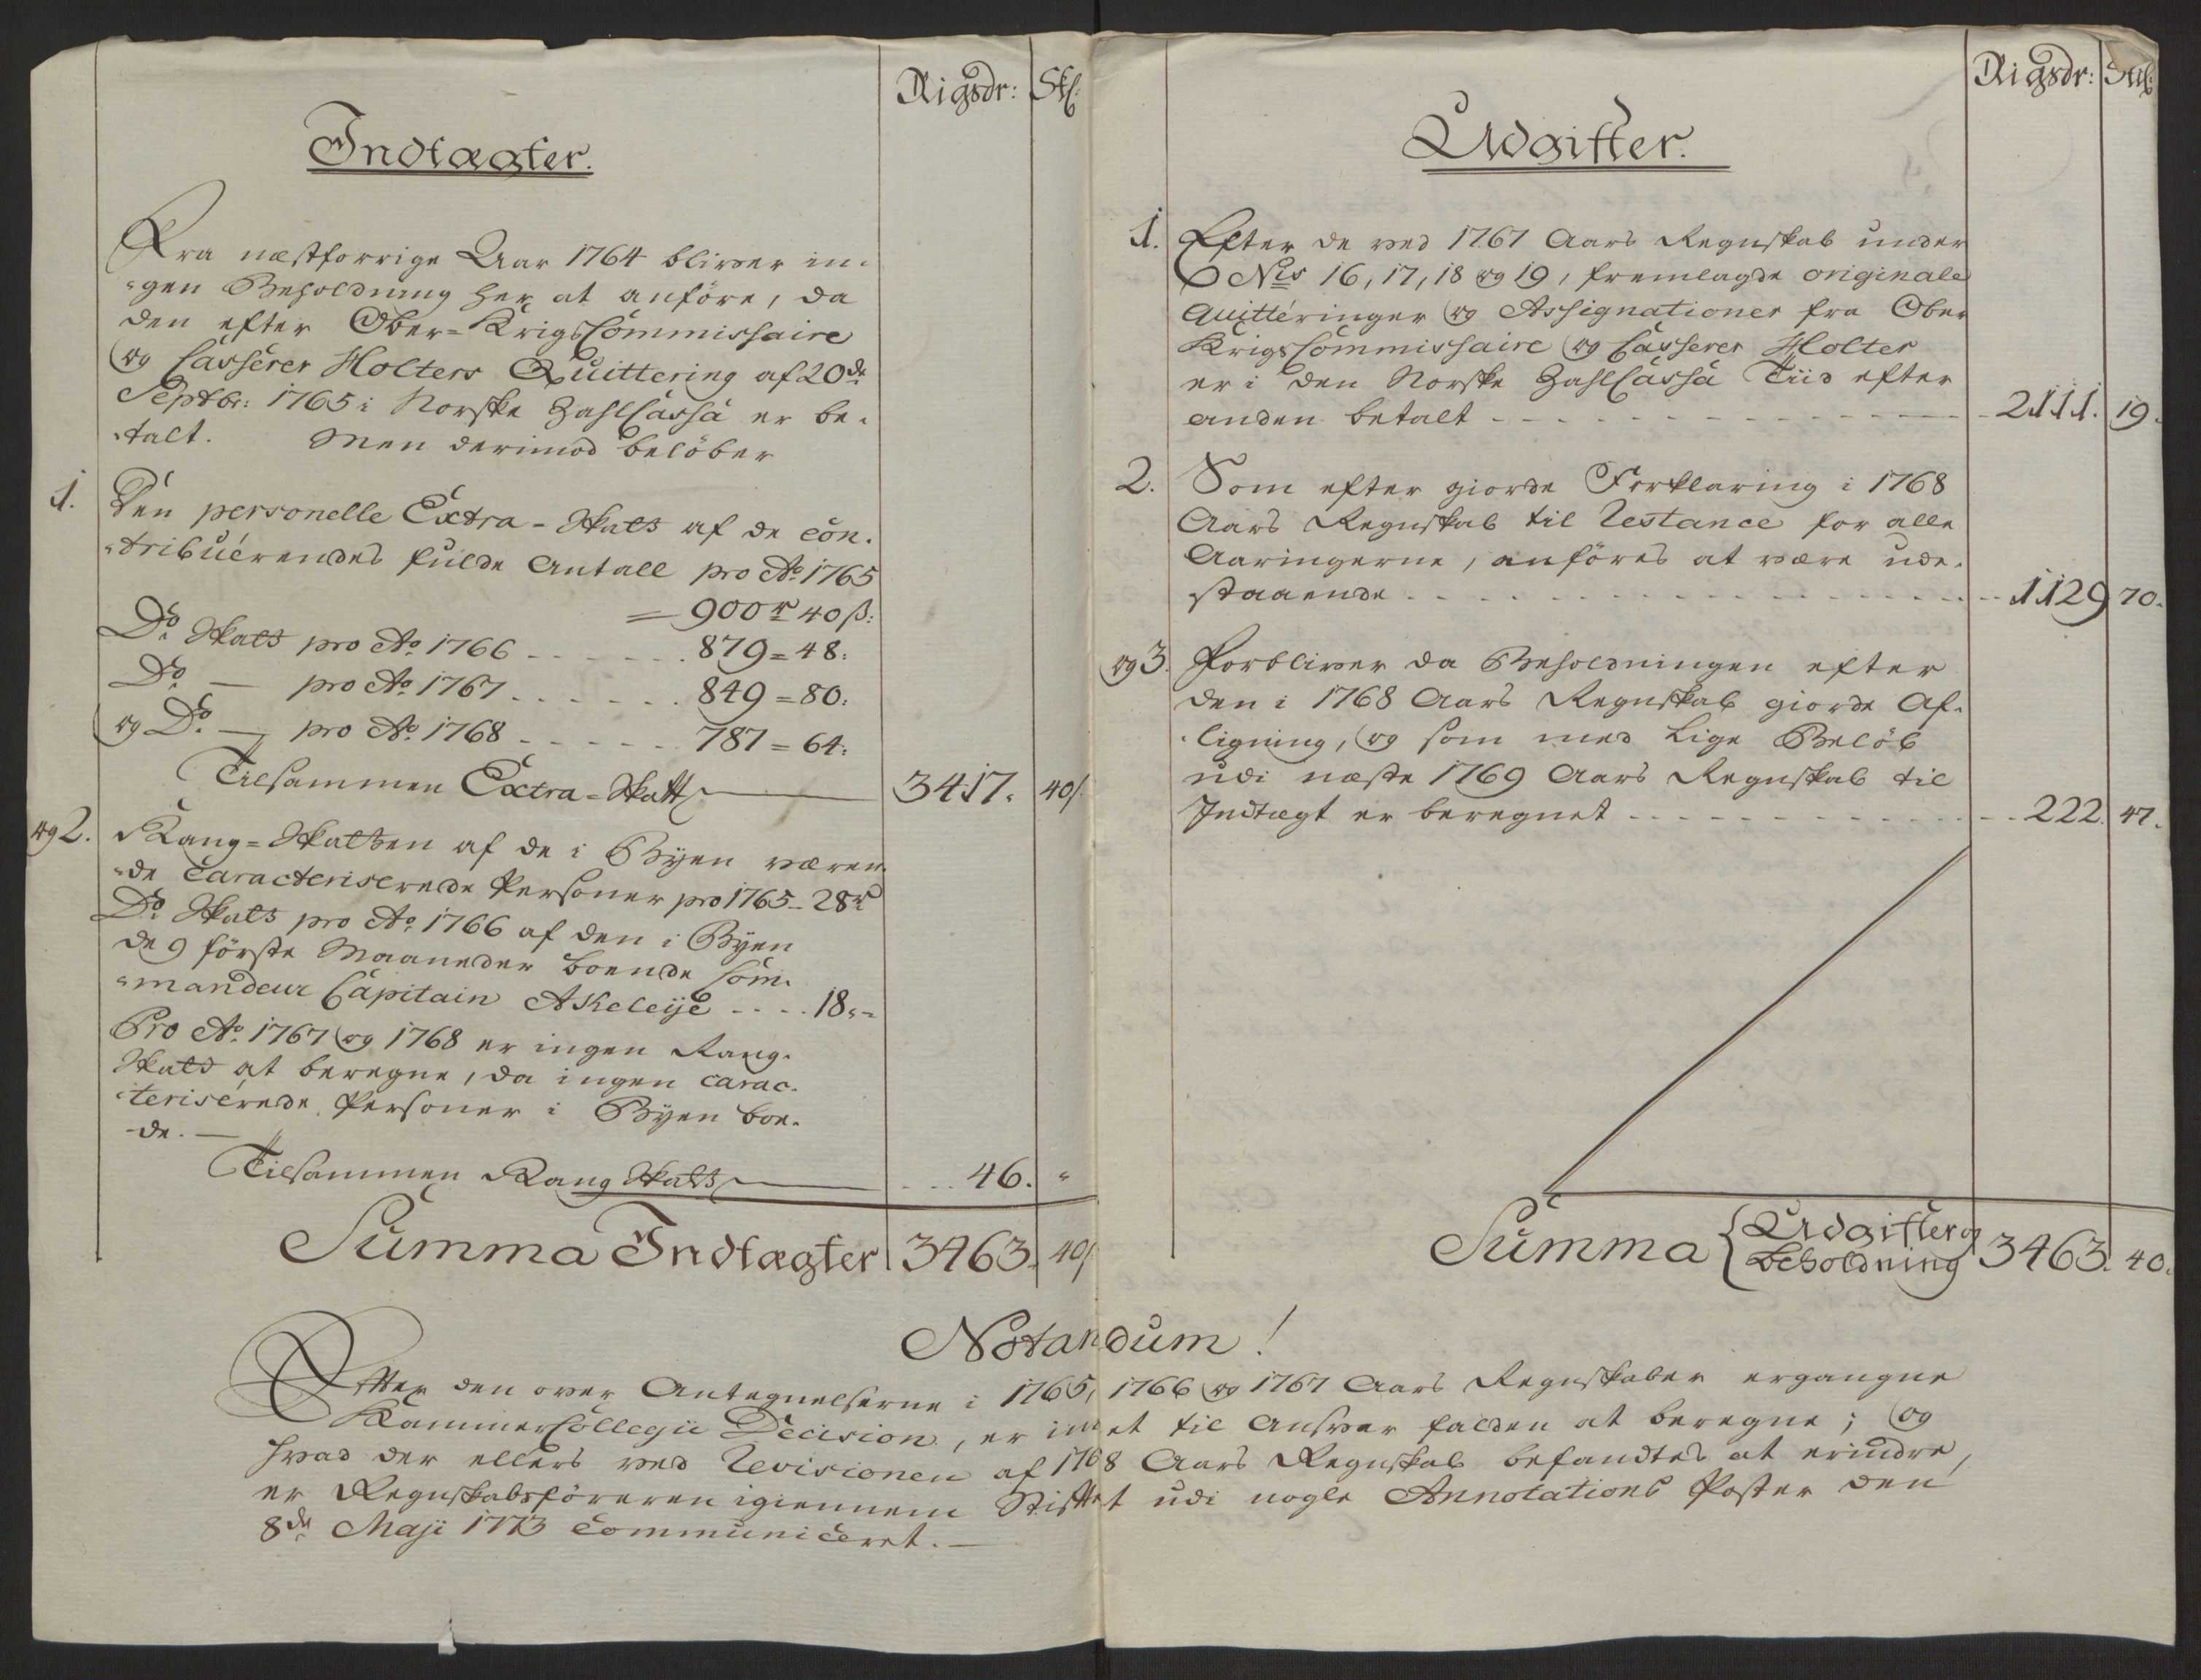 Rigsdr: Sk:
Indtægter.
Fra næstforrige Aar 1764 bliver in-
-gen Beholdning her at anföre, da
den efter Ober-KrigsCommissaire
og Casserer Holters Quittering af 20de
Septbr: 1765 i Norske ZahlCassa er be-
-talt. Men derimod belöber
1. Den personelle Extra-Skatt af de con-
-tribuerendes fulde Antall pro Ao 1765
= 900r 40ß:
Do Skatt pro Ao 1766 - - - - - - 879 = 48:
Do — pro Ao 1767 - - - - - - 849 = 80:
og Do — pro Ao 1768 - - - - - - 787 = 64:
Tilsammen Extra-Skatt — 3417. 40/.
og 2. Rang-Skatten af de i Byen væren-
-de Caracteriserede Personer pro 1765 - 28r
Do Skatt pro Ao 1766 af den i Byen
de 9 förste Maaneder boende Com-
-mandeur Capitain Akeleÿe - - - - 18 " -
Pro Ao 1767 og 1768 er ingen Rang-
Skatt at beregne, da ingen carac-
-teriserede Personer i Byen boe-
-de. —
Tilsammen Rang Skatt — 46. "
Summa Indtægter 3463. 40/.
Rigsdr: Sk:
Udgifter.
1. Efter de ved 1767 Aars Regnskab under
Nis 16, 17, 18 og 19, fremlagde originale
Quitteringer og Assignationer fra Ober
KrigsCommissaire og Casserer Holter
er i den Norske ZahlCassa Tiid efter
anden betalt - - - - - - 2111. 19.
2. Som efter giorde Forklaring i 1768
Aars Regnskab til Restance for alle
Aaringerne, anföres at være ude-
staaende - - - - - - 1129 70.
og 3. Forbliver da Beholdningen efter
den i 1768 Aars Regnskab giorde Af-
-ligning, og som med lige Belöb
udi næste 1769 Aars Regnskab til
Indtægt er beregnet - - - - - - 222. 47.
Summa { Udgifter og
Beholdning 3463. 40.
Notandum!
Efter den over Antegnelserne i 1765, 1766 og 1767 Aars Regnskaber ergangne
KammerCollegii Decision, er intet til Ansvar falden at beregne; og
hvad der ellers ved Revisionen af 1768 Aars Regnskab befandtes at erindre,
er Regnskabsföreren igiennem Stiftet udi nogle Annotations Poster den
8de Maji 1773 communiceret. —